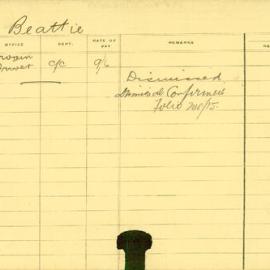 Beattie
OFFICE DEPT. RATE OF PAY REMARKS
c/c 9/6 Dismissed
Dismissal Confirmed
Folio 200/15.